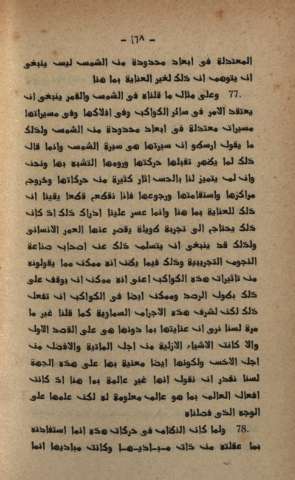 - ١٦٨ -
المعتدلة فى ابعاد محدودة من الشمس ليس ينبغى
ان يتوهم ان ذلك لغير العناية بما هنا
77. وعلى مثال ما قلناه فى الشمس والقمر ينبغى ان
يعتقد الامر فى سائر الكواكب وفى افلاكها وفى مسيراتها
مسيرات معتدلة فى ابعاد محدودة من الشمس ولذلك
ما يقول ارسطو ان سيرتها هى سيرة الشمس وانما قال
ذلك لما يظهر تقبلها حركتها ورومها التشبه بها ونحن
وان لم يتميز لنا بالحس اثار كثيرة من حركاتها وخروج
مراكزها واستقامتها ورجوعها فانا نقطع قطعا يقينا ان
ذلك للعناية بما هنا وانما عسر علينا ادراك ذلك اذ كان
ذلك يحتاج الى تجربة طويلة يقصر عنها العمر الانسانى
ولذلك قد ينبغى ان يتسلم ذلك عن اصحاب صناعة
النجوم التجريبية وذلك فيما يظن انه ممكن مما يقولونه
من تاثيرات هذه الكواكب اعنى انه ممكن ان يوقف على
ذلك بطول الرصد وممكن ايضا فى الكواكب ان تفعل
ذلك لكن لشرف هذه الاجرام السماوية كما قلنا غير ما
مرة لسنا نرى ان عنايتها بما دونها هى على القصد الاول
والا كانت الاشياء الازلية من اجل الماتية والافضل من
اجل الاخس ولكونها ايضا معنية بها على هذه الجهة
لسنا نقدر ان نقول انها غير عالمة بما هنا اذ كانت
افعال العالم بما هو عالم معلومة له لكن علمها على
الوجه الذى فصلناه
78. ولما كان النظام فى حركات هذه انما استفادته
بما عقلته من ذات مـبـاديـهـا وكانت مباديها انما